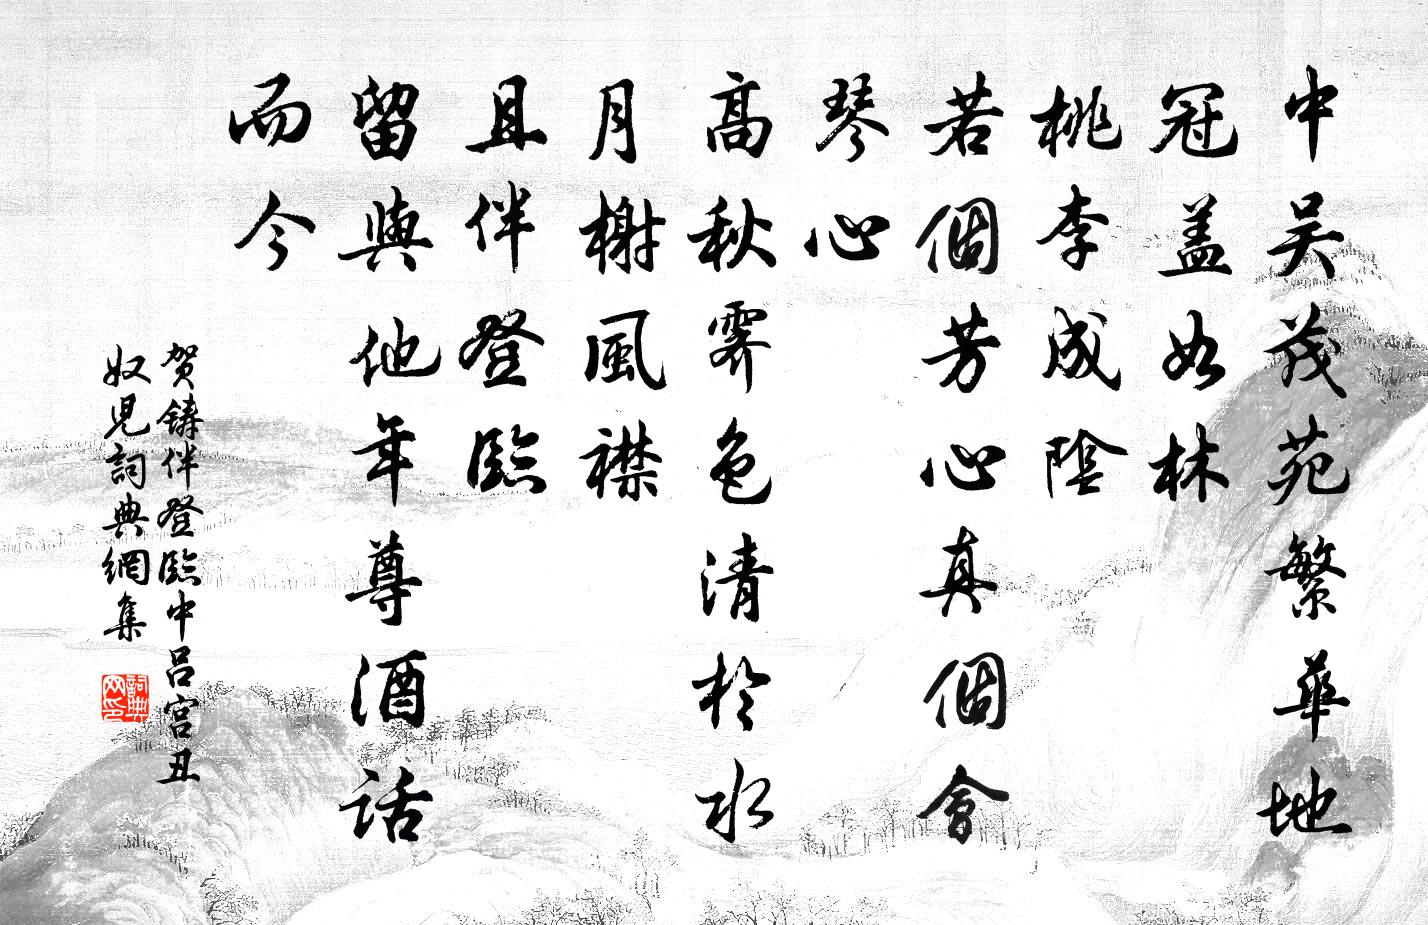 中吴茂苑繁華地
冠盖如林
桃李成陰
若個芳心真個會
琴心
高秋霽色清於水
月榭風襟
且伴登臨
留與他年尊酒話
而今
贺鑄伴登臨中吕宫丑
奴児詞典網集
詞典
网印